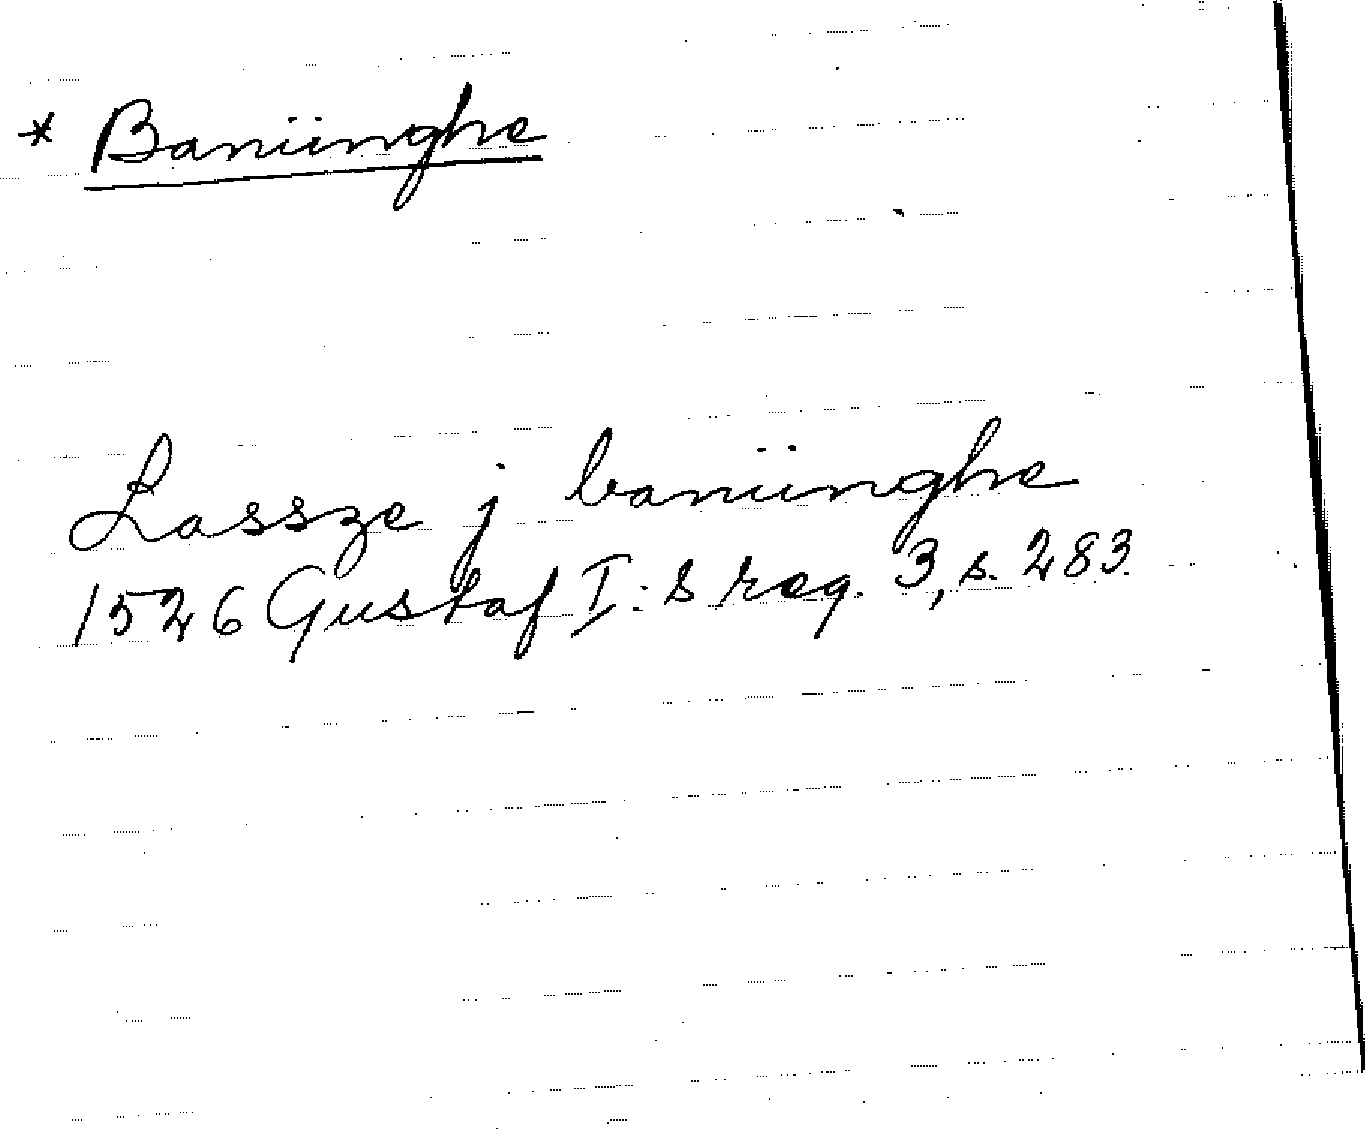 * Banünghe
Lassze j banünghe
1526 Gustaf I:s reg. 3, s. 283.